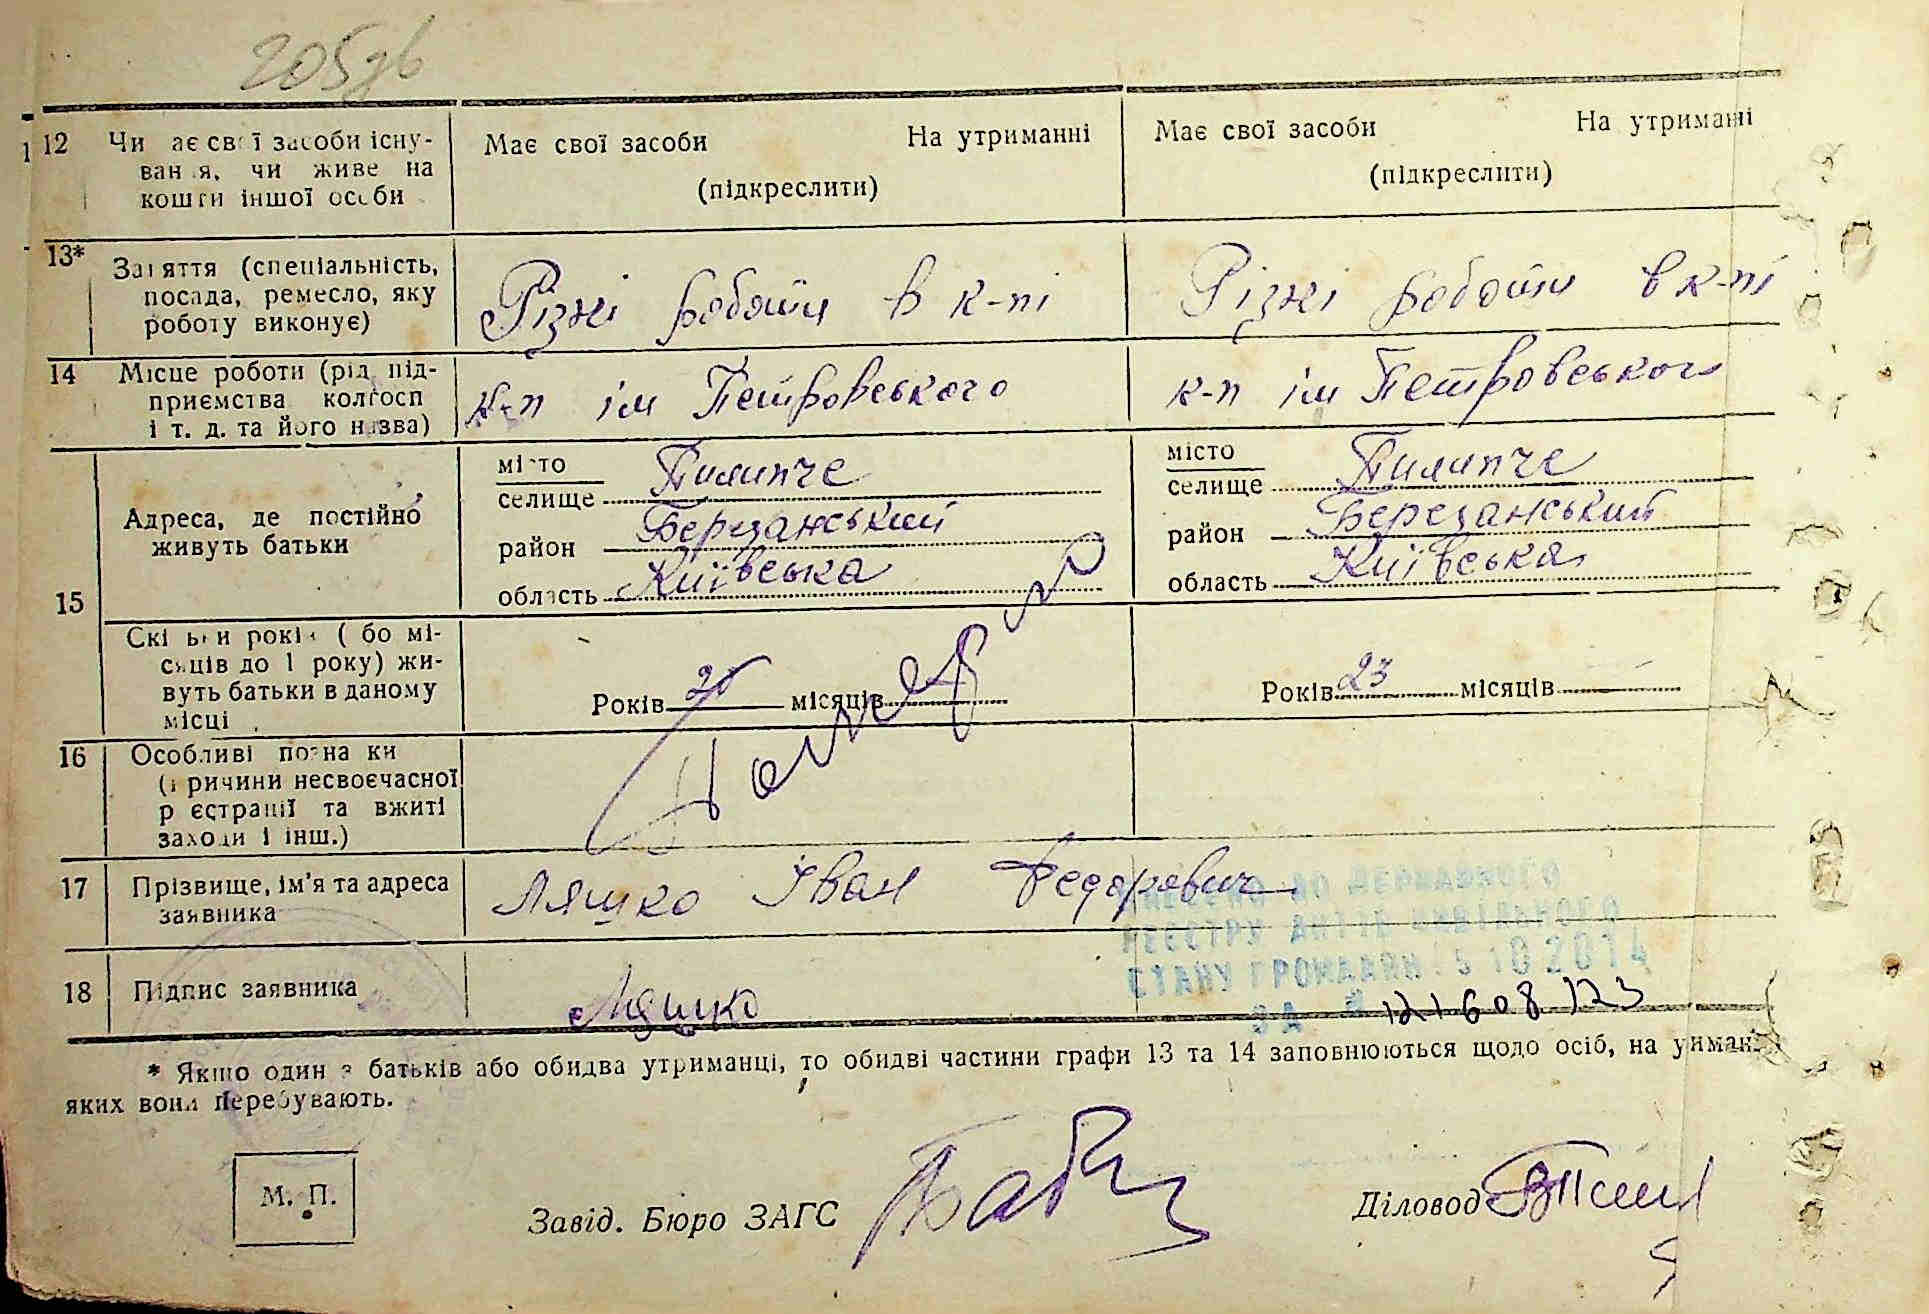 205зв
12 Чи ає сві ї засоби існу- Має свої засоби На утриманні Має свої засоби На утриманні
ван я, чи живе на (підкреслити) (підкреслити)
кошти іншої особи
13* Заняття (спеціальність, Різні роботи в к-пі Різні роботи в к-пі
посада, ремесло, яку
роботу виконує)
14 Місце роботи (рід під- к-п ім Петровського к-п ім Петровського
приємства колгосп
і т. д. та його назва)
15 Адреса, де постійно
живуть батьки
місто Пилипче місто Пилипче
селище селище
район Березанський район Березанський
область Київська область Київська
Скільки років ( бо мі-
сяців до 1 року) жи-
вуть батьки в даному
місці
Років місяців Років 23 місяців
16 Особливі позна ки
(причини несвоєчасної
р єстрації та вжиті
заходи і інш.)
17 Прізвище, ім'я та адреса Ляшко Іван Федорович
заявника
ВНЕСЕНО ДО ДЕРЖАВНОГО
РЕЄСТРУ АКТІВ ЦИВІЛЬНОГО
СТАНУ ГРОМАДЯН 15 10 2014
ЗА № 121608123
18 Підпис заявника Ляшко
* Якщо один з батьків або обидва утриманці, то обидві частини графи 13 та 14 заповнюються щодо осіб, на утриман
яких вони перебувають.
М. П.
Завід. Бюро ЗАГС Діловод